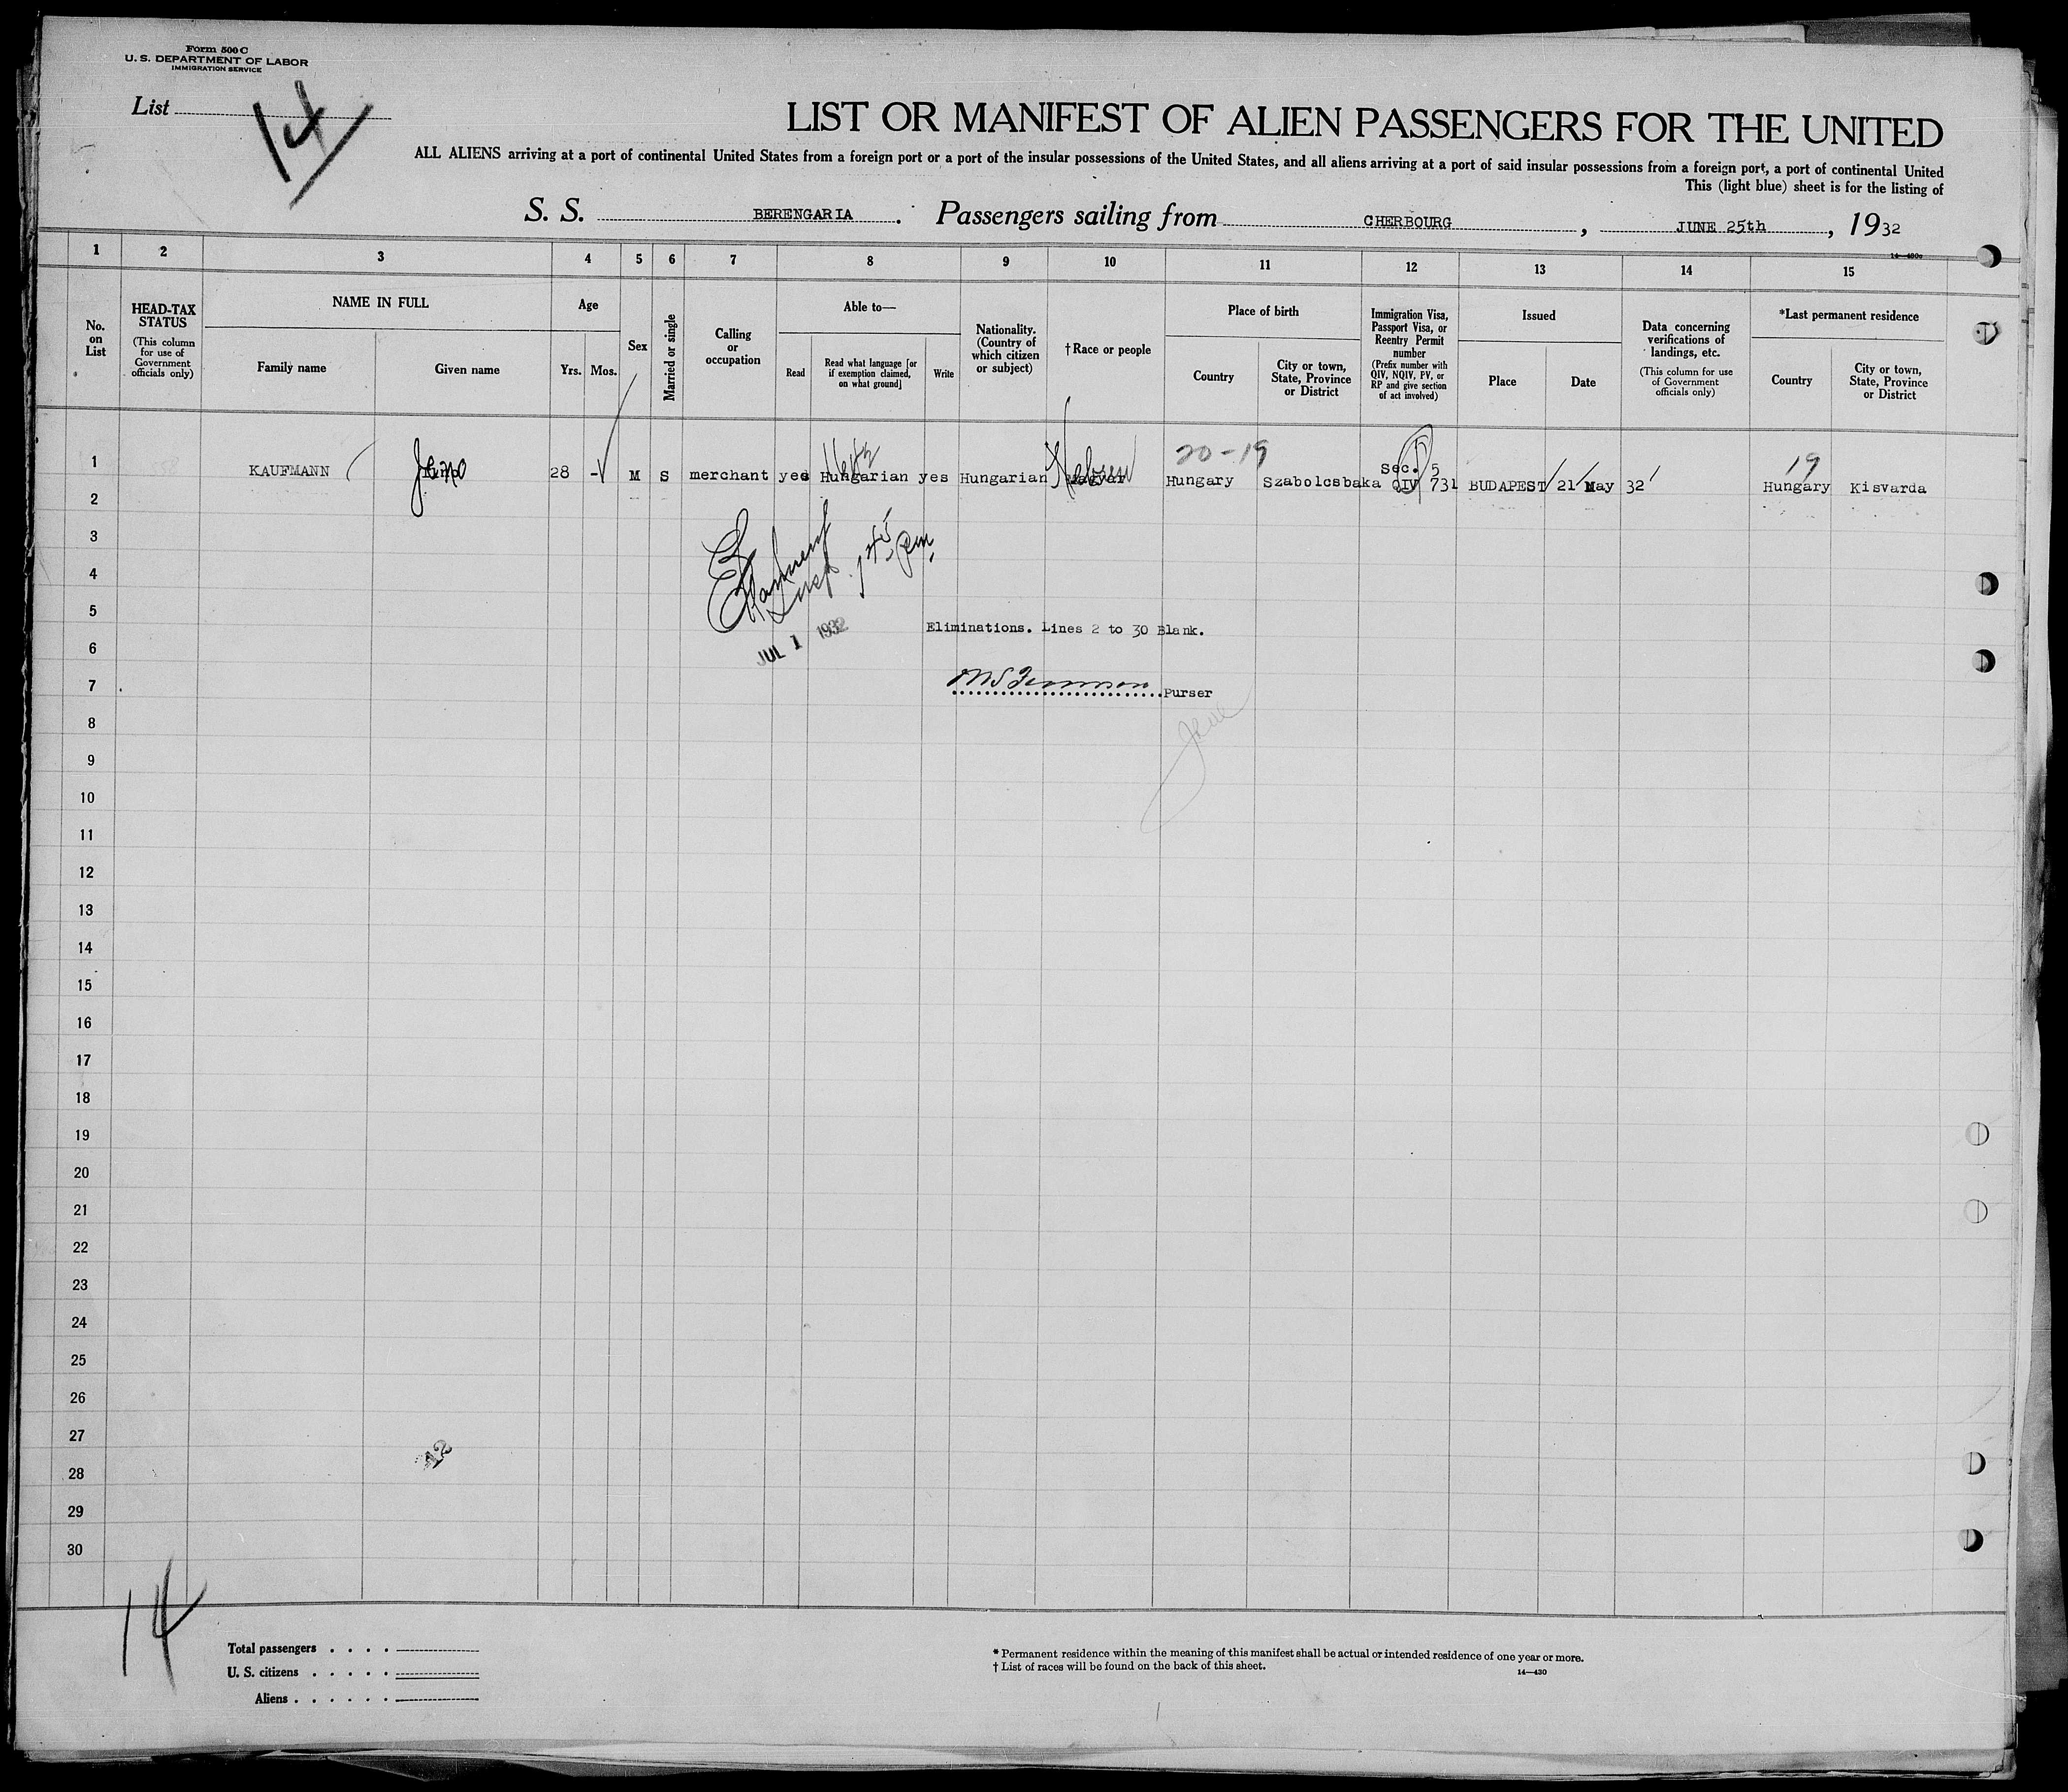 Form 500 C
U. S. DEPARTMENT OF LABOR
IMMIGRATION SERVICE
List 14
LIST OR MANIFEST OF ALIEN PASSENGERS FOR THE UNITED
ALL ALIENS arriving at a port of continental United States from a foreign port or a port of the insular possessions of the United States, and all aliens arriving at a port of said insular possessions from a foreign port, a port of continental United
This (light blue) sheet is for the listing of
S. S. BERENGARIA . Passengers sailing from CHERBOURG , JUNE 25th , 1932
14—430c
1 2 3 4 5 6 7 8 9 10 11 12 13 14 15
No. on List
HEAD-TAX STATUS (This column for use of Government officials only)
NAME IN FULL
Family name
Given name
Age
Yrs. Mos.
Sex
Married or single
Calling or occupation
Able to—
Read
Read what language [or if exemption claimed, on what ground]
Write
Nationality. (Country of which citizen or subject)
†Race or people
Place of birth
Country
City or town, State, Province or District
Immigration Visa, Passport Visa, or Reentry Permit number (Prefix number with QIV, NQIV, PV, or RP and give section of act involved)
Issued
Place
Date
Data concerning verifications of landings, etc. (This column for use of Government officials only)
*Last permanent residence
Country
City or town, State, Province or District
20-19 Sec. 5 19
1 KAUFMANN Jeno 28 - M S merchant yes Hungarian yes Hungarian Hebrew Hungary Szabolcsbaka QIV 731 BUDAPEST 21 May 32 Hungary Kisvarda
2
3
4
5
Insp 1 45 pm.
JUL 1 1932
Eliminations. Lines 2 to 30 Blank.
6
7
Purser
8
9
10
11
12
13
14
15
16
17
18
19
20
21
22
23
24
25
26
27
28
29
30
14
Total passengers . . . .
U. S. citizens . . . . .
Aliens . . . . . .
* Permanent residence within the meaning of this manifest shall be actual or intended residence of one year or more.
† List of races will be found on the back of this sheet.
14—430